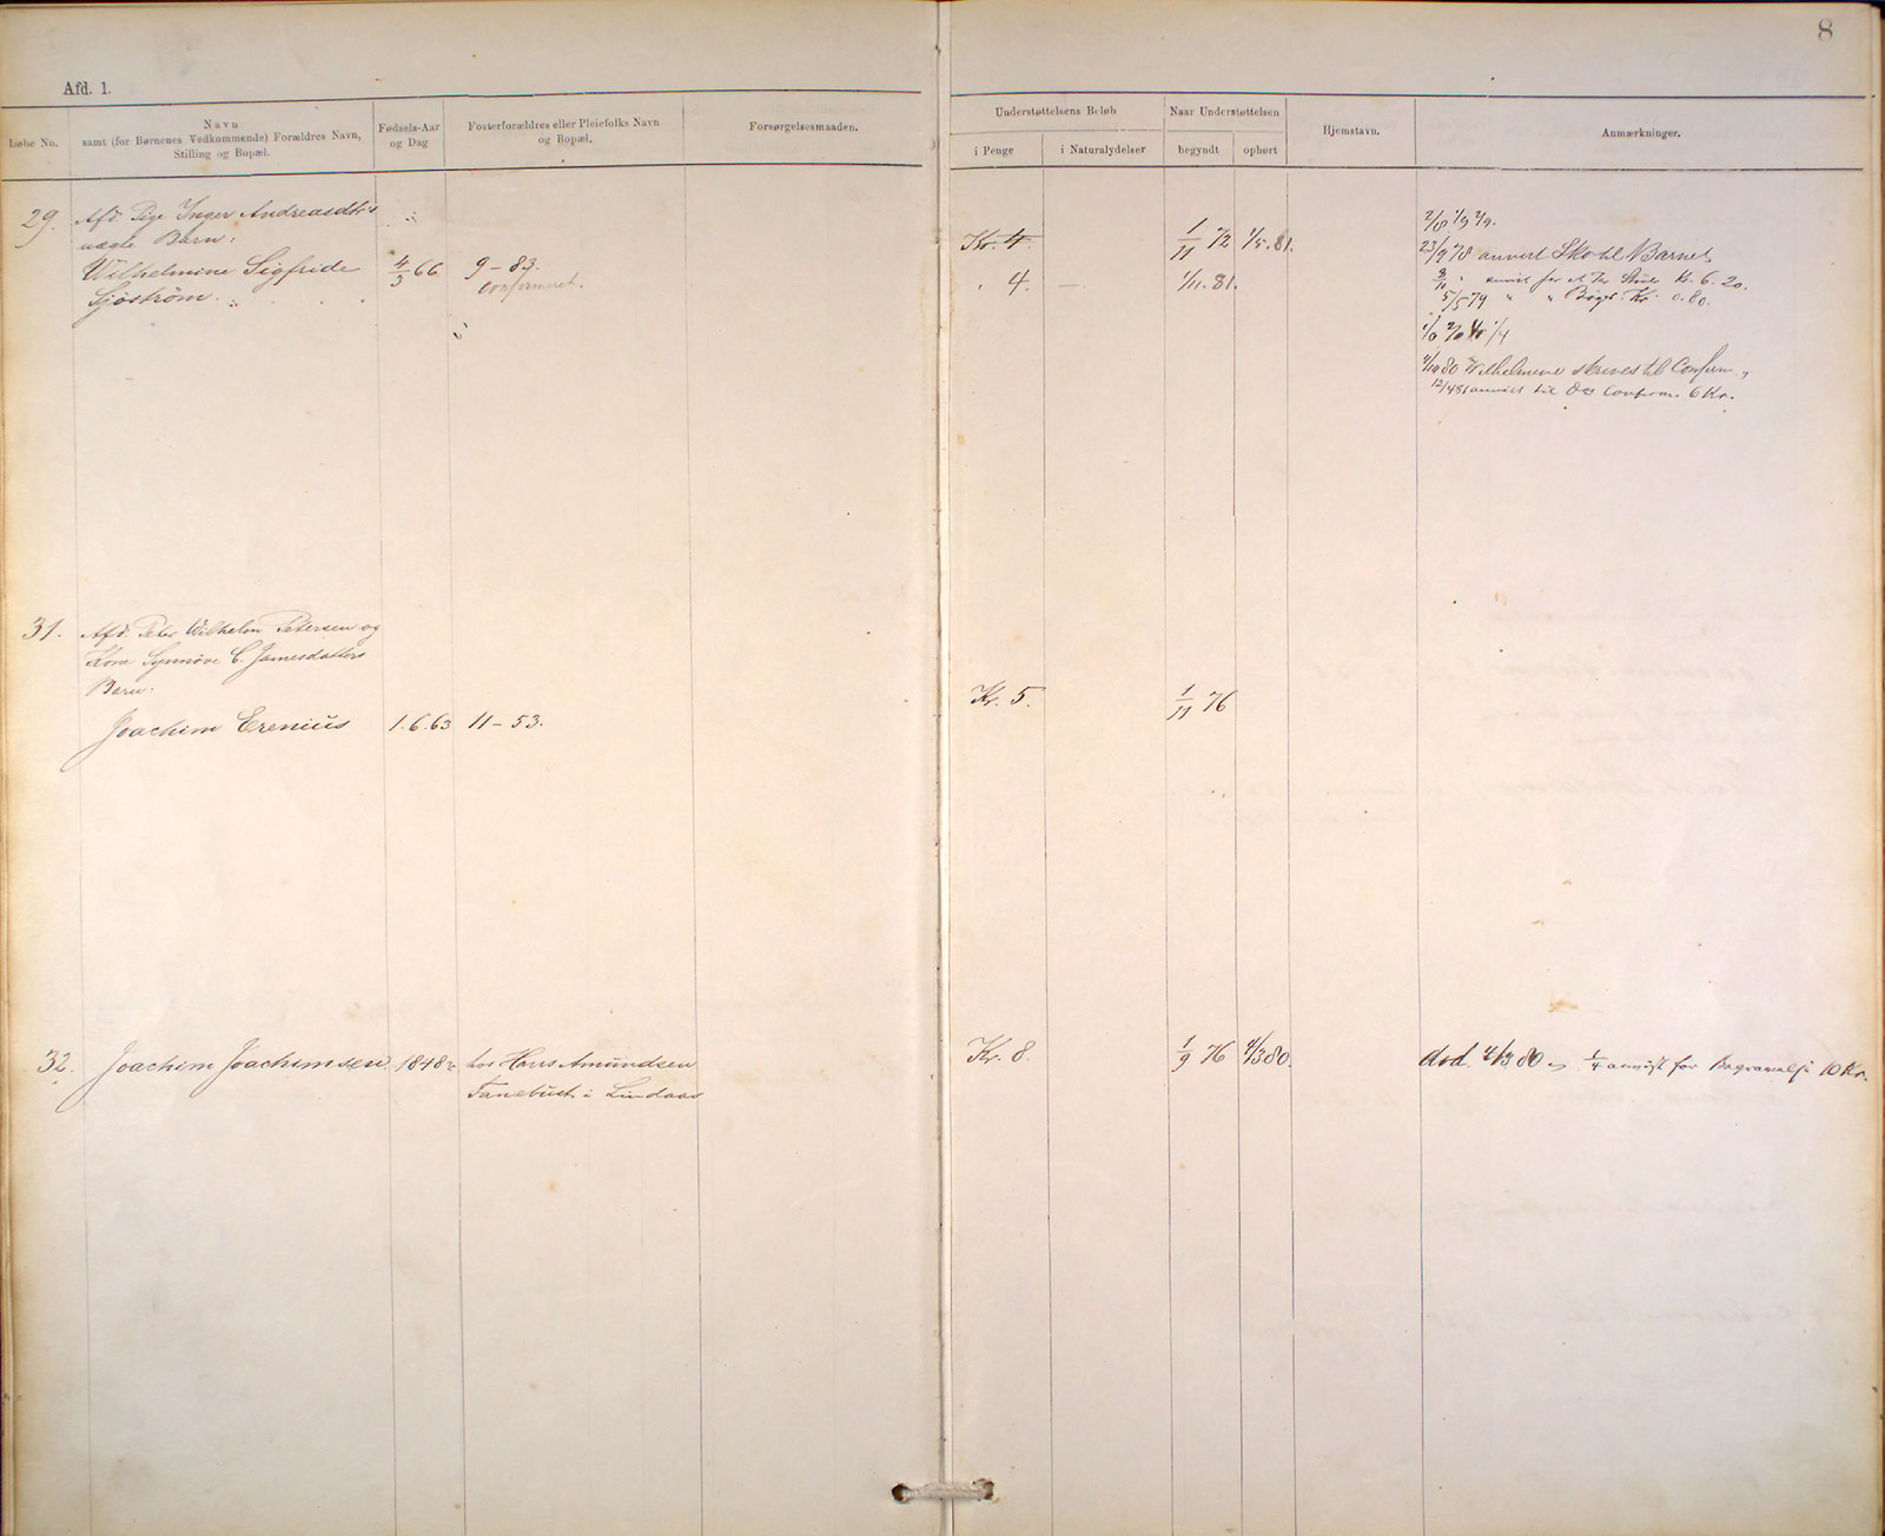 8
Afd. 1.
Løbe No.
Navn
samt (for Børnenes Vedkommende) Forældres Navn,
Stilling og Bopæl.
Fødsels-Aar
og Dag
Fosterforældres eller Pleiefolks Navn
og Bopæl.
Forsørgelsesmaaden.
Understøttelsens Beløb
i Penge
i Naturalydelser
Naar Understøttelsen
begyndt
ophørt
Hjemstavn.
Anmærkninger.
29. Afd. Pige Inger Andreasdtr's
uægte Barn:
Wilhelmine Sigfride
Sjöström.
4/3 66
9 - 83.
confirmeret.
Kr. 4.
1/11 72
1/5. 81.
4.
1/11. 81.
23/9 78 anvist Sko til Barnet
3/10 " anvist for et Par Støvler Kr. 6. 20.
5/5 79 " " Bøger Kr. 0. 80.
80 Wilhelmine skrives til Confirm.
12/4 81 anvist til Confirm. 6 Kr.
31. Afd. Peter Wilhelm Petersen og
Kone Synnöve C. Jamesdatters
Barn.
Joachim Erenius
1. 6. 63
11 - 53.
Kr. 5.
1/11 76
32. Joachim Joachimsen
1848
hos Hans Amundsen
Fanebust i Lindaas
Kr. 8.
1/9 76
4/3 80.
död 4/3 80
1/4 anvist for Begravelse 10 Kr.